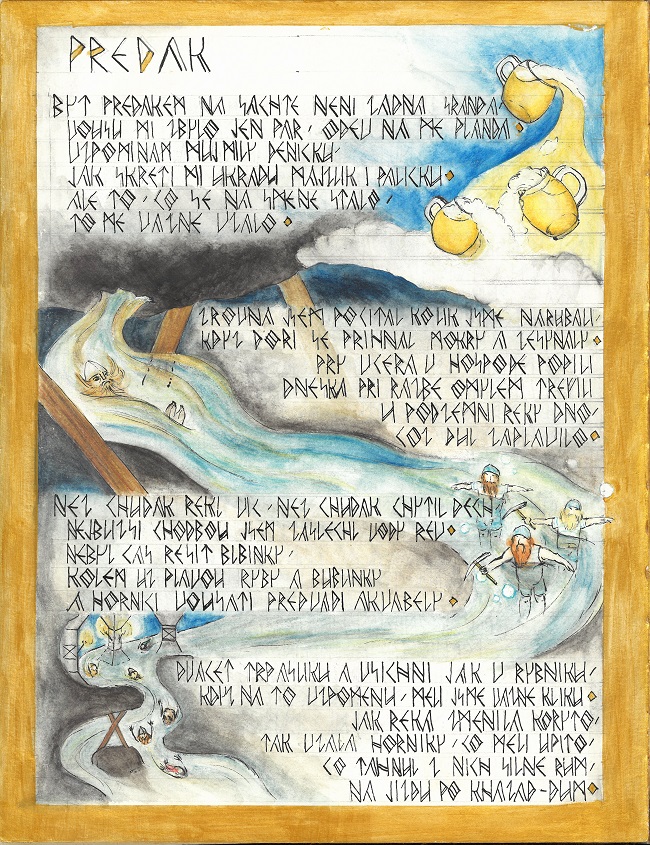 PREDAK
BYT PREDAKEM NA SACHTE NENI ZADNA SRANDA,
VOUSU MI ZBYLO JEN PAR, ODEV NA ME PLANDA
VZPOMINAM MUJ MILY DENICKU,
JAK SKRETI MI UKRADLI MAJZLIK I PALICKU
ALE TO, CO SE NA SMENE STALO,
TO ME VAZNE VZALO
ZROVNA JSEM POCITAL KOLIK JSME NARUBALI,
KDYZ DORI SE PRIHNAL MOKRY A ZESYNALY
PRY VCERA V HOSPODE POPILI
DNESKA PRI RAZBE OMYLEM TREFILI
V PODZEMNI REKY DNO,
COZ DUL ZAPLAVILO
NEZ CHUDAK REKL VIC, NEZ CHUDAK CHYTIL DECH
NEJBLIZSI CHODBOU JSEM ZASLECHL VODY REV
NEBYL CAS RESIT BLBINKY,
KOLEM UZ PLAVOU RYBY A BUBLINKY
A HORNICI VOUSATI PREDVADI AKVABELY
DVACET TRPASLIKU A VSICHNI JAK V RYBNIKU,
KDYZ NA TO VZPOMENU, MELI JSME VAZNE KLIKU
JAK REKA ZMENILA KORYTO,
TAK VZALA HORNIKY, CO MELI UPITO,
CO TAHNUL Z NICH SILNE RUM,
NA JIZDU PO KHAZAD-DUM